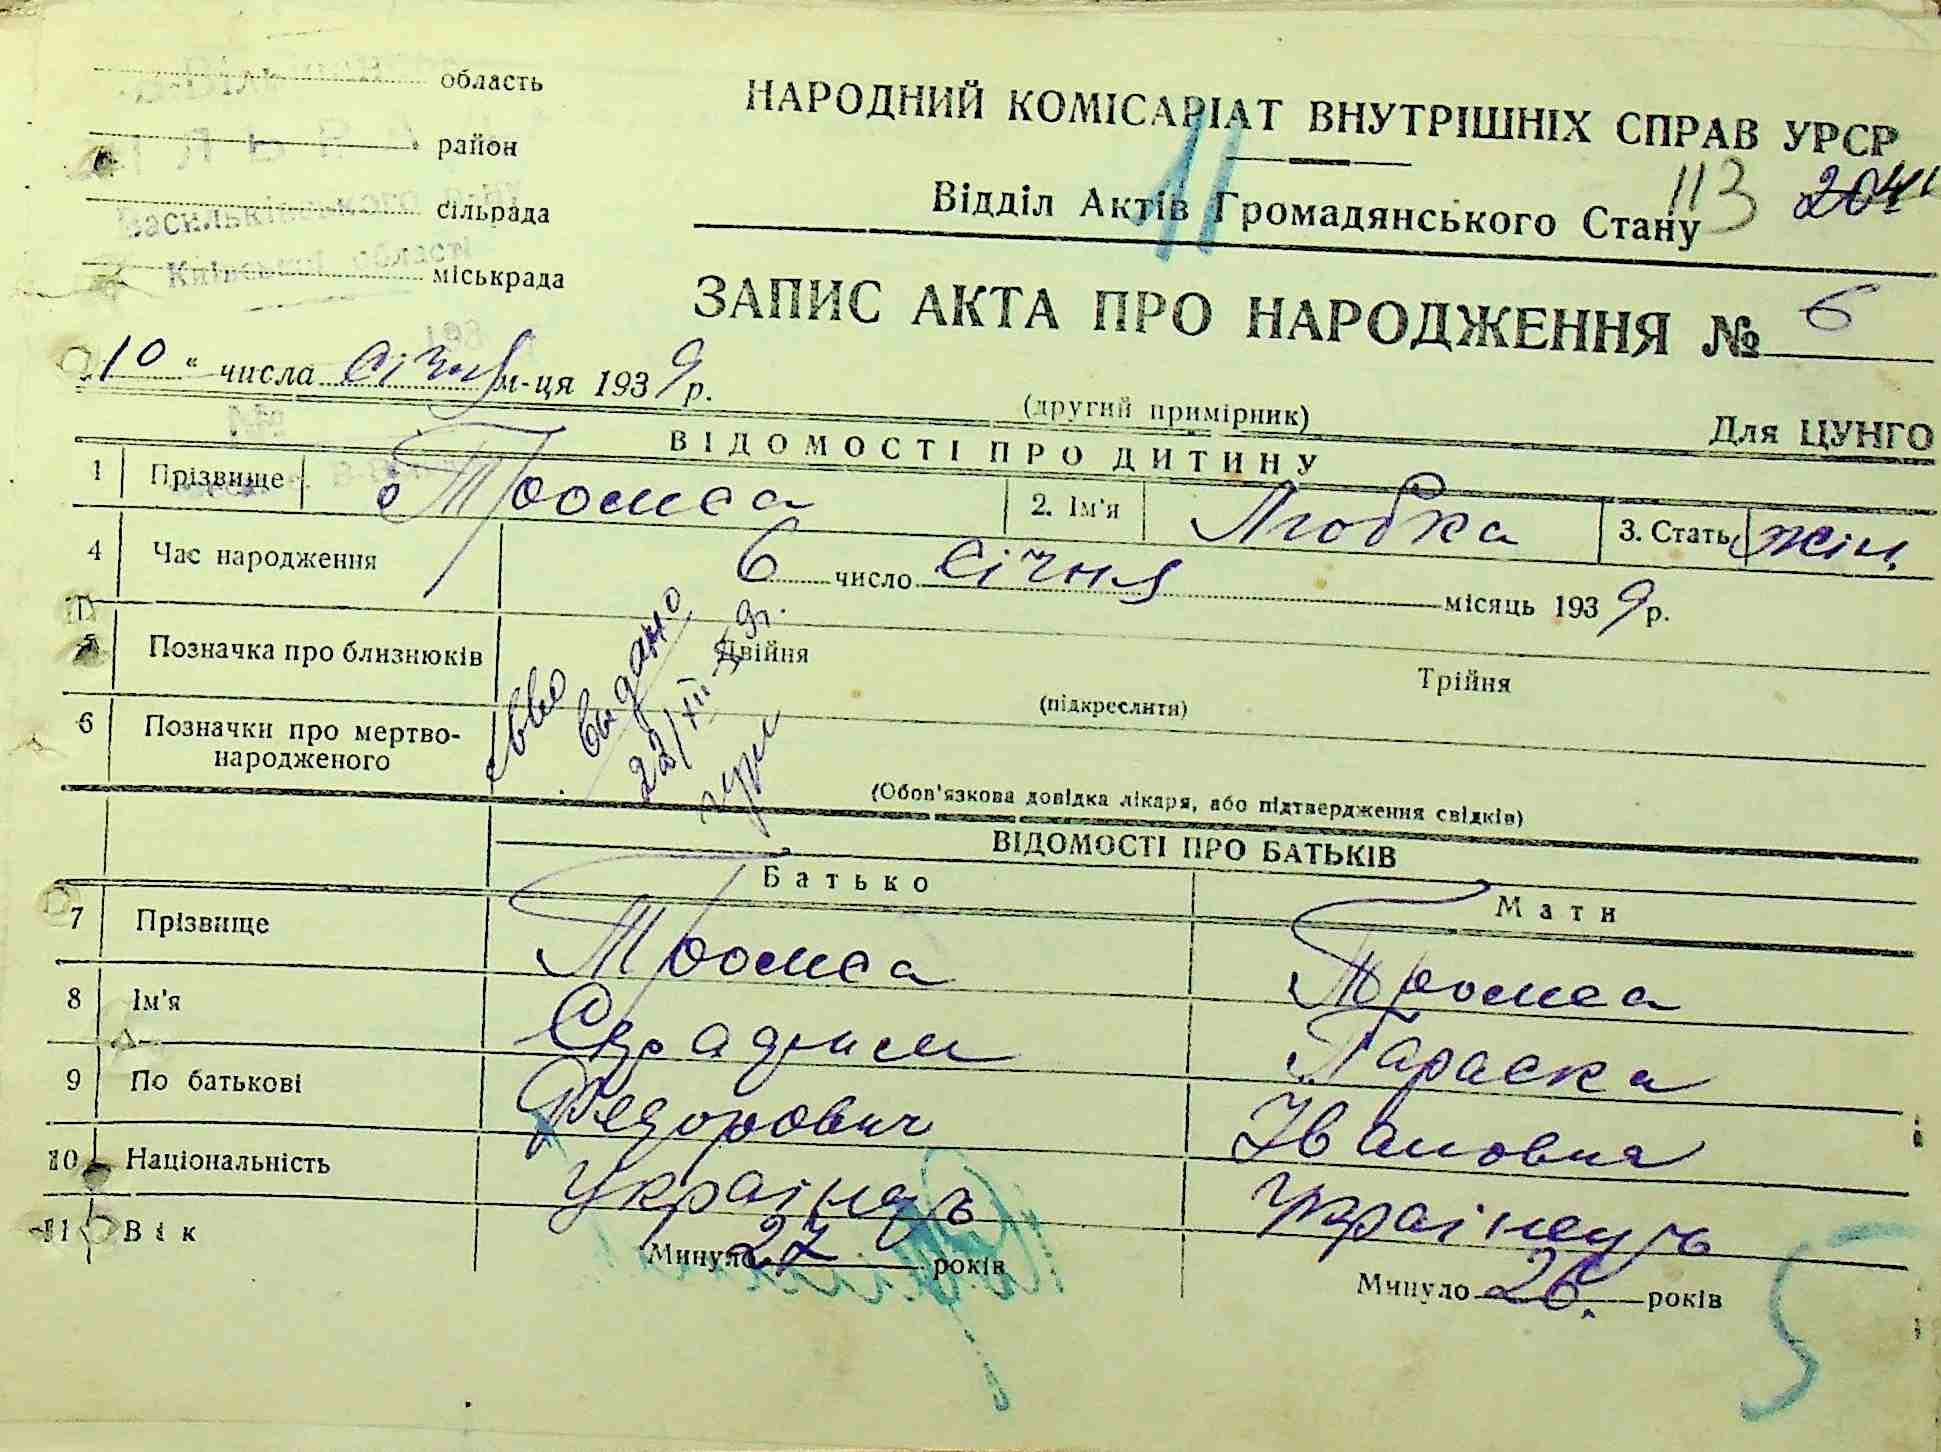 область
район
сільрада
міськрада
Васильківського р-ну
Київської області
НАРОДНИЙ КОМІСАРІАТ ВНУТРІШНІХ СПРАВ УРСР
11
Відділ Актів Громадянського Стану
113 204
ЗАПИС АКТА ПРО НАРОДЖЕННЯ № 6
10 " числа січня м-ця 1939 р.
(другий примірник)
Для ЦУНГО
ВІДОМОСТІ ПРО ДИТИНУ
1 Прізвище Троомса 2. Ім'я Любка 3. Стать жін.
4 Час народження 6 число січня місяць 1939 р.
5 Позначка про близнюків Двійня Трійня
(підкреслити)
6 Позначки про мертво-
народженого
(Обов'язкова довідка лікаря, або підтвердження свідків)
выдано
22/XII-59г.
ВІДОМОСТІ ПРО БАТЬКІВ
Батько Мати
7 Прізвище Троомса Троомса
8 Ім'я Параска
9 По батькові Федорович Івановна
10 Національність українець українець
11 Вік Минуло 27 років Минуло 26. років
5